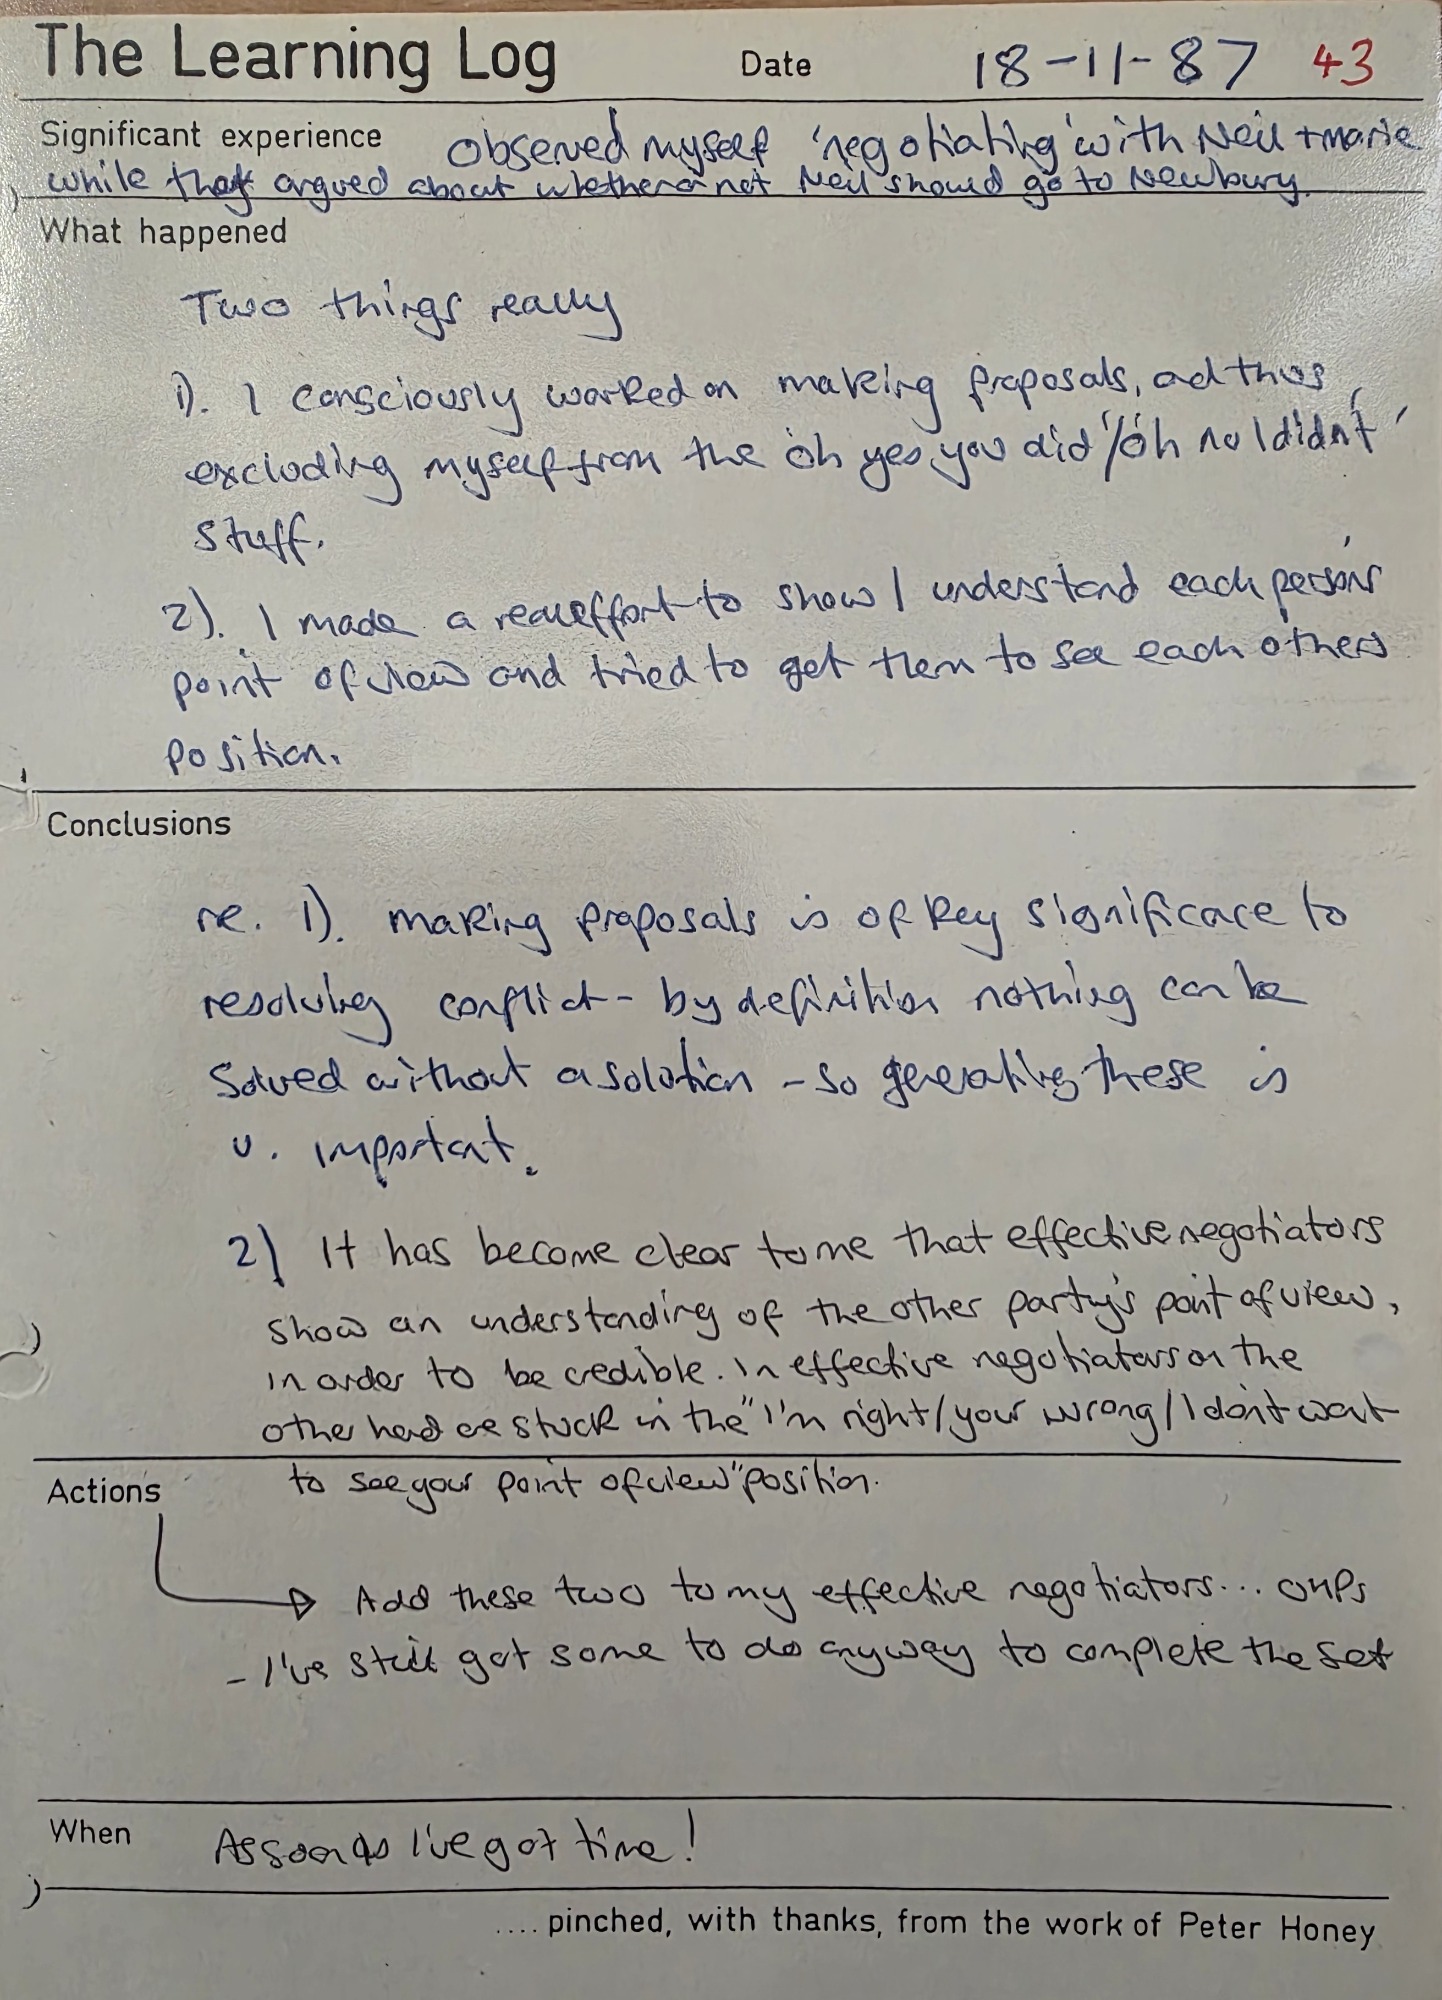 The Learning Log Date 18-11-87 43
Significant experience Observed myself 'negotiating' with Neil + Marie
while they argued about whether or not Neil should go to Newbury.
What happened
Two things really
1). I consciously worked on making proposals, and thus
excluding myself from the 'oh yes you did'/'oh no I didn't'
stuff.
2). I made a real effort to show I understand each person's
point of view and tried to get them to see each others
position.
Conclusions
re. 1). Making proposals is of key significance to
resolving conflict - by definition nothing can be
solved without a solution - so generating these is
v. important.
2) It has become clear to me that effective negotiators
show an understanding of the other party's point of view,
in order to be credible. Ineffective negotiators on the
other hand are stuck in the "I'm right/your wrong/I don't want
to see your point of view" position.
Actions
Add these two to my effective negotiators... OHPs
- I've still got some to do anyway to complete the set
When As soon as I've got time!
.... pinched, with thanks, from the work of Peter Honey